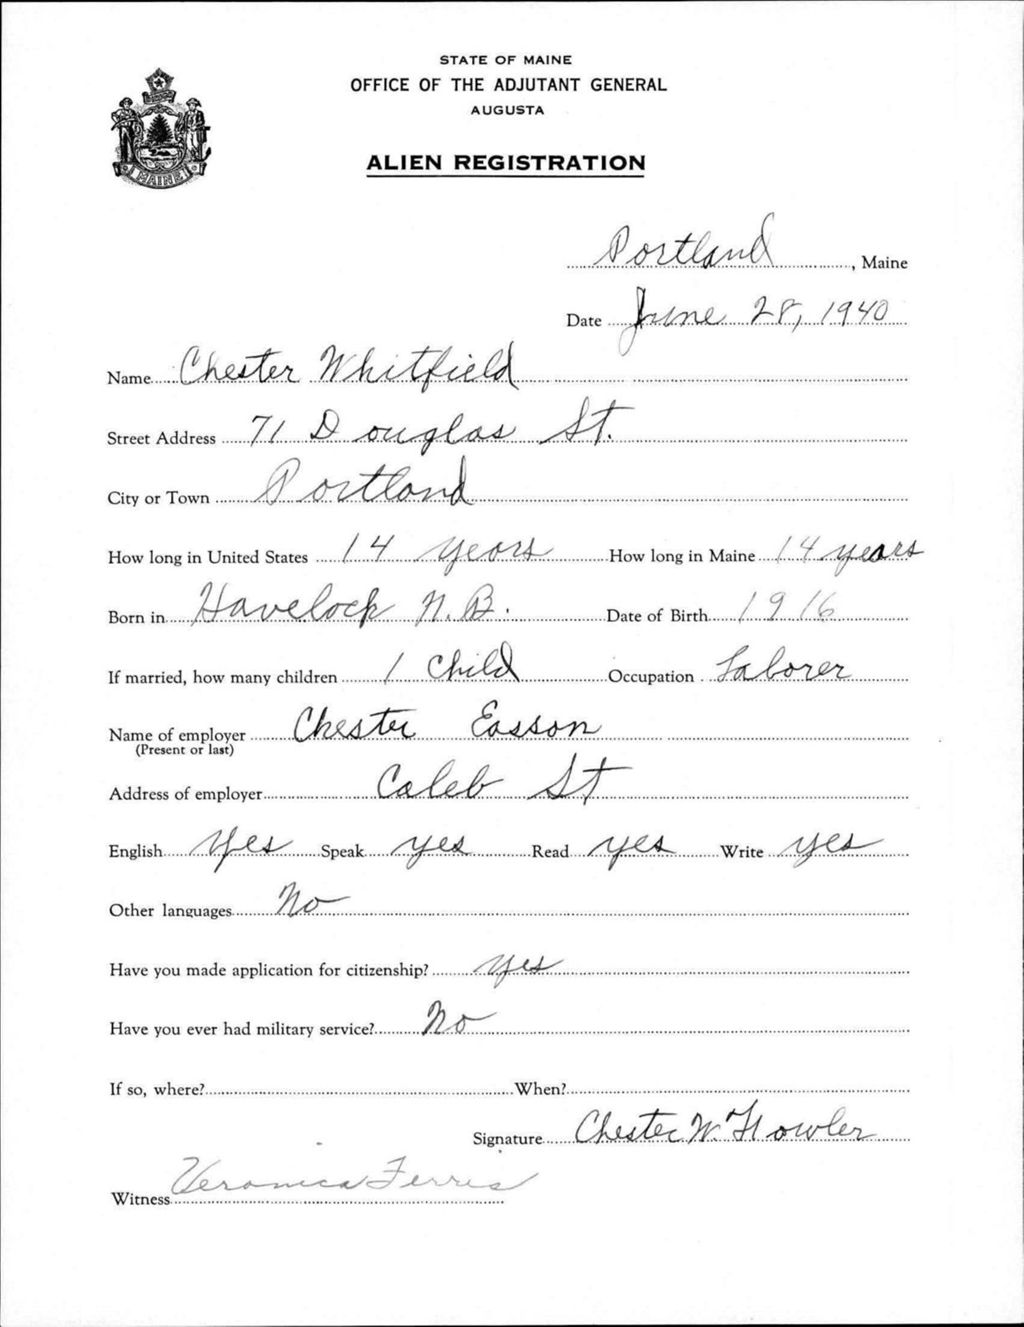 STATE OF MAINE
OFFICE OF THE ADJUTANT GENERAL
AUGUSTA
ALIEN REGISTRATION
MAINE
Portland, Maine
Date June 28, 1940
Name Chester Whitfield
Street Address 71 Douglas St.
City or Town Portland
How long in United States 14 years How long in Maine 14 years
Born in Havelock N.B. Date of Birth 1916
If married, how many children 1 Child Occupation Laborer
Name of employer Chester Easson
(Present or last)
Address of employer Caleb St
English Yes Speak yes Read yes Write yes
Other languages No
Have you made application for citizenship? yes
Have you ever had military service? No
If so, where? When?
Signature Chester W. Flowler
Witness Veronica Ferris